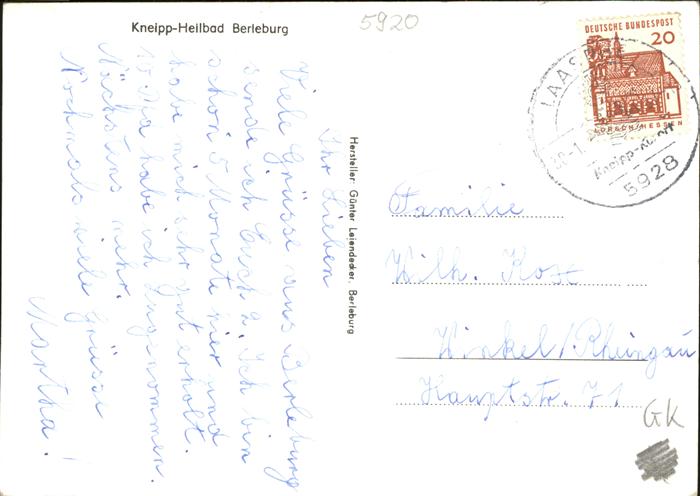 Kneipp-Heilbad Berleburg
5920
Ihr Lieben
Viele Grüsse aus Berleburg
sende ich Euch 2. Ich bin
schon 5 Monate hier und
habe mich sehr gut erholt.
10 habe ich zugenommen.
Nächstens mehr.
Nochmals viele Grüsse
Martha!
Hersteller: Günter Leiendecker, Berleburg
DEUTSCHE BUNDESPOST
20
LORSCH/HESSEN
LAASPHE
Kneipp-Kurort
5928
Familie
Wilh. Kost
Winkel/Rheingau
Hauptstr. 71
GK